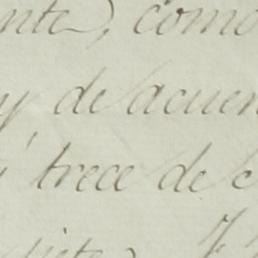 nte, como
y de acuer
trece de